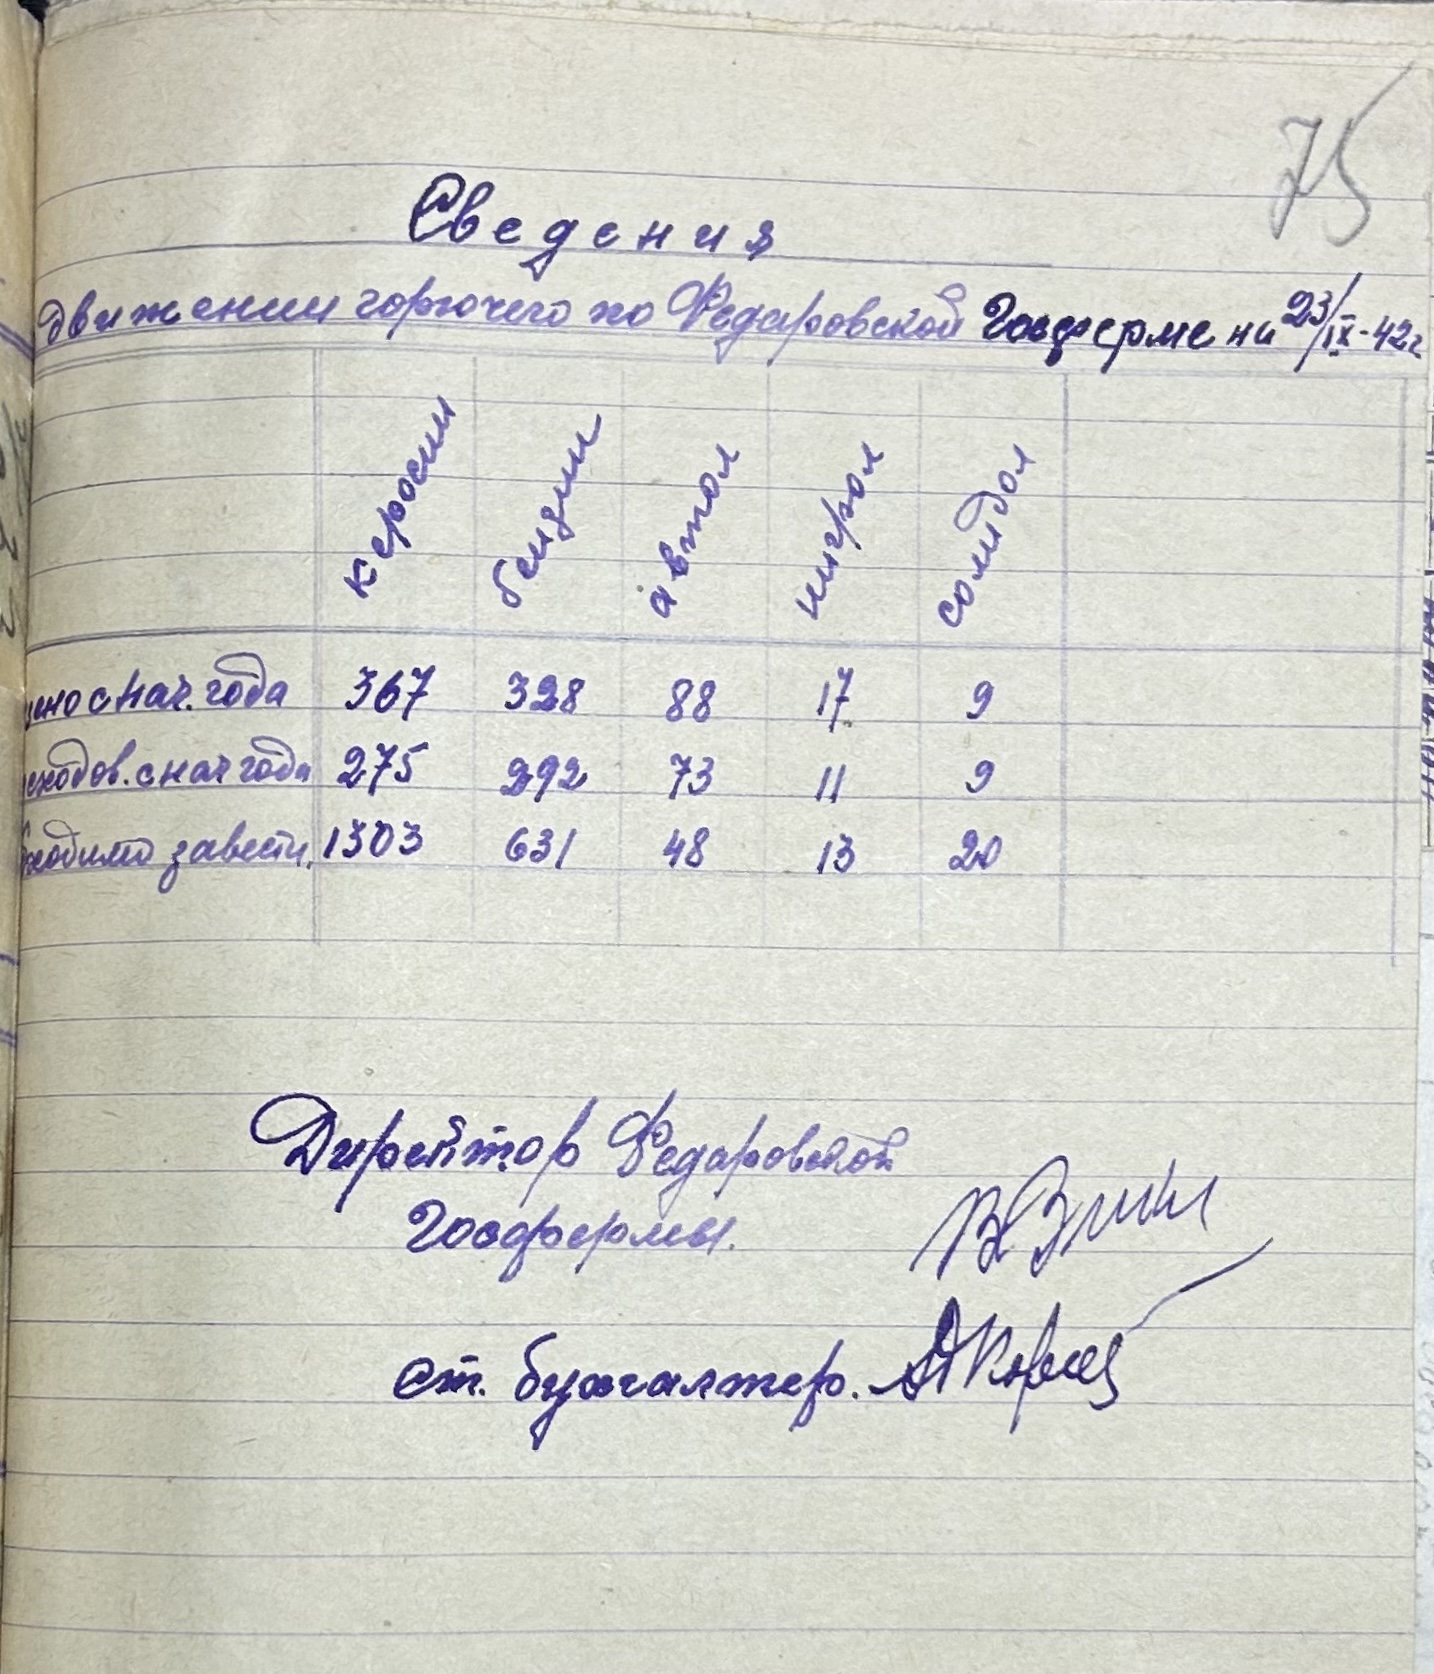 75
Сведения
движении горючего по Федаровской Госферме на 23/IX-42г
керосин бензин автол нигрол солидол
с нач. года 367 328 88 17 9
с нач года 275 292 73 11 9
завести. 1303 631 48 13 20
Директор Федаровской
Госфермы.
ст. бухгалтер.